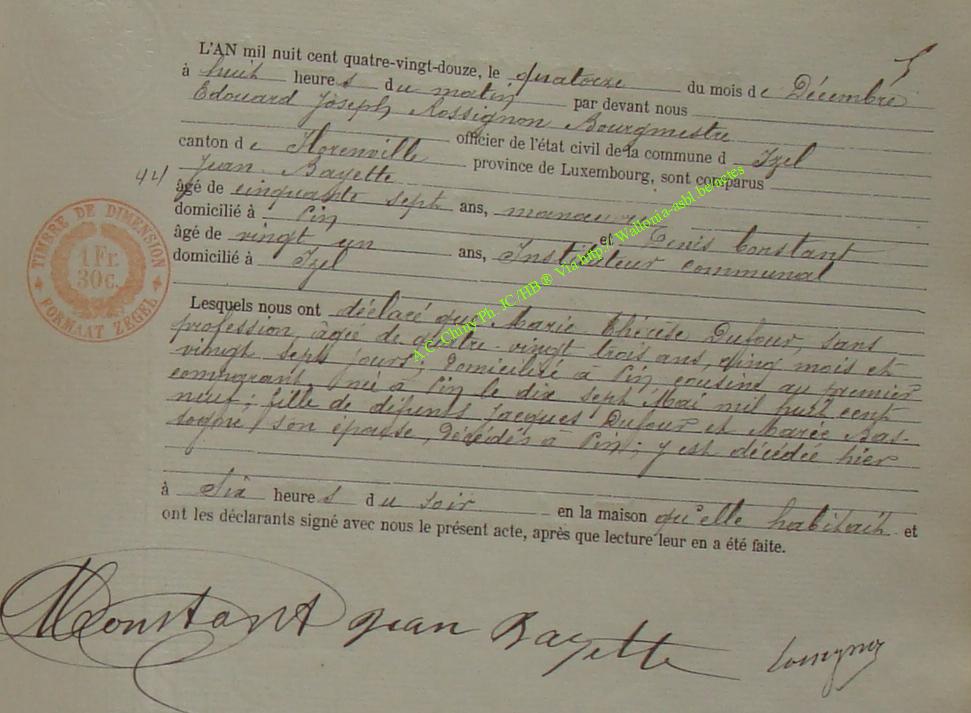 5
L'AN mil huit cent quatre-vingt-douze, le quatorze du mois de Décembre
à huit heures du matin par devant nous
Edouard Joseph Rossignon Bourgmestre
officier de l'état civil de la commune d Izel
canton de Florenville province de Luxembourg, sont comparus
Jean Bayette
44
âgé de cinquante sept ans, manœuvre
domicilié à Pin et Denis Constant
âgé de vingt un ans, Instituteur communal
domicilié à Izel
Lesquels nous ont déclaré que Marie Thérèse Dufour, sans
profession, âgée de quatre-vingt trois ans, cinq mois et
vingt sept jours; domiciliée à Pin, cousine au premier
comparant, née à Pin le dix sept Mai mil huit cent
neuf; fille de défunts Jacques Dufour et Marie Bas-
togne, son épouse, décédés à Pin; y est décédée hier
à six heures du soir en la maison qu'elle habitait et
ont les déclarants signé avec nous le présent acte, après que lecture leur en a été faite.
Constant Jean Bayette
TIMBRE DE DIMENSION
1 Fr.
30c.
FORMAAT ZEGEL
A.C. Chiny Ph. JC/HB® Via http://Wallonia-asbl.be/actes